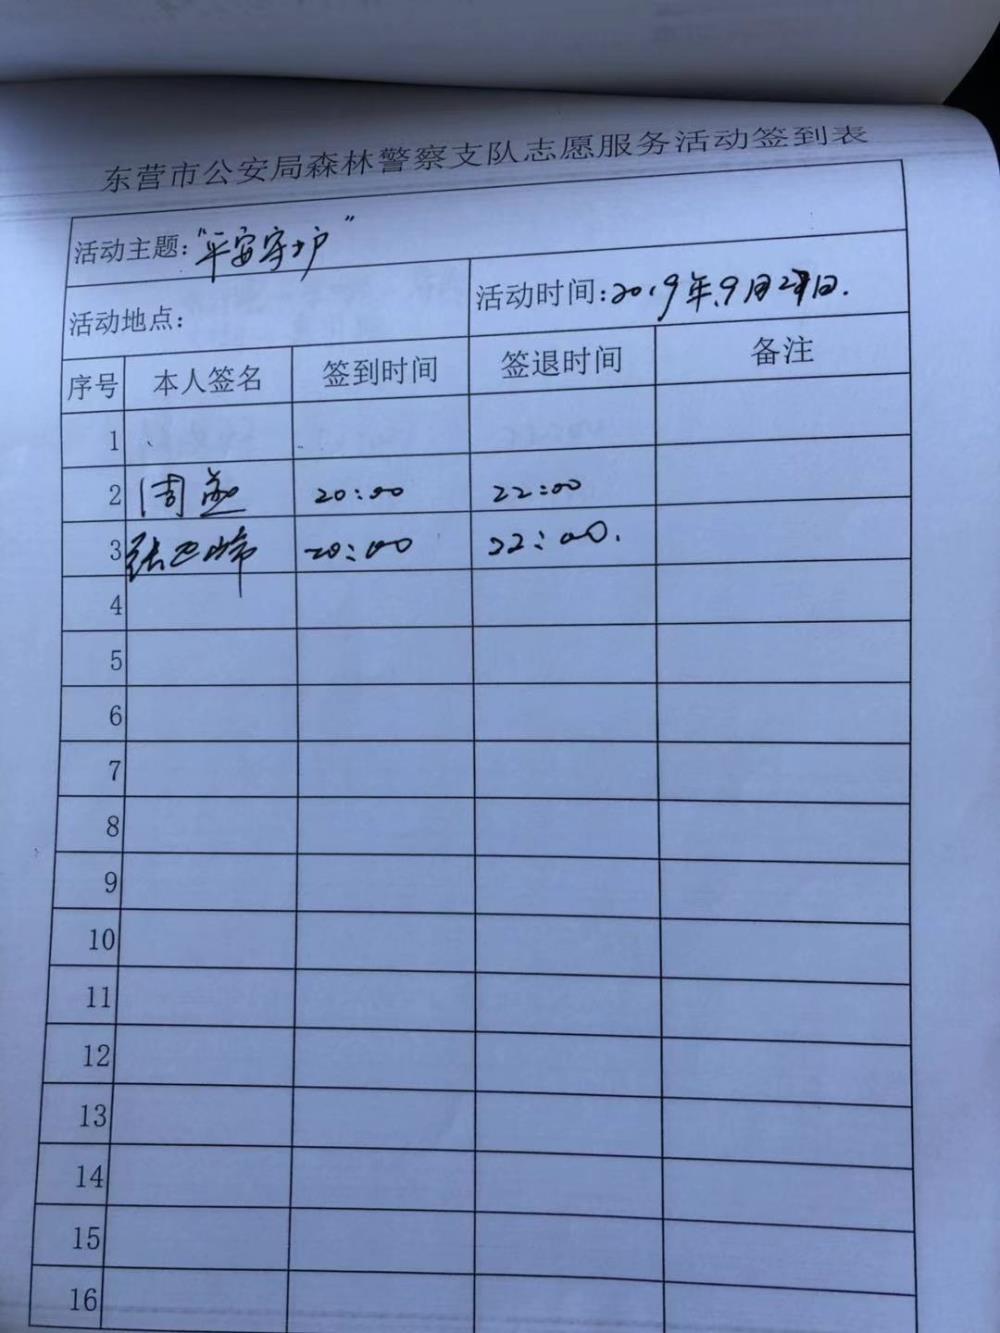 东营市公安局森林警察支队志愿服务活动签到表
活动主题:"平安守护"
活动地点: 活动时间:2019年.9月27日.
序号 本人签名 签到时间 签退时间 备注
1
2 周燕 20:00 22:00
3 张 峰 20:00 22:00.
4
5
6
7
8
9
10
11
12
13
14
15
16